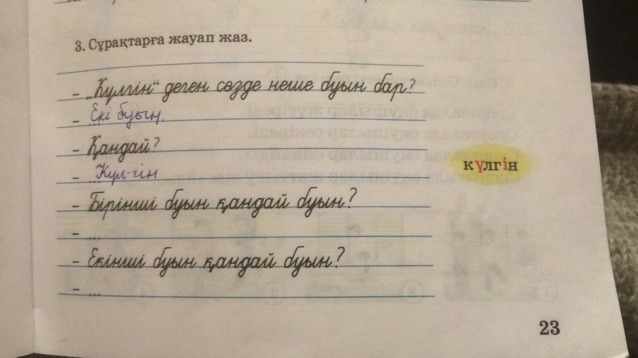 3. Сұрақтарға жауап жаз.
– „Күлгін“ деген сөзде неше буын бар?
– Екі буын.
– Қандай?
– Күл-гін
күлгін
– Бірінші буын қандай буын?
– ...
– Екінші буын қандай буын?
– ...
23